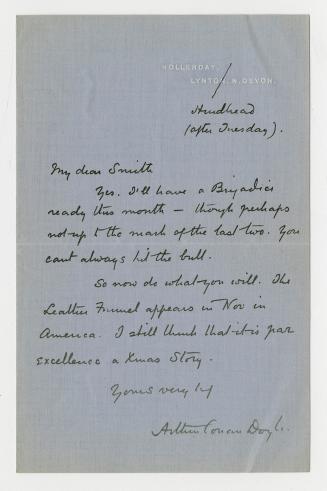 HOLLERDAY,
LYNTON, N. DEVON.
Hindhead
(after Tuesday).
My dear Smith
Yes. I'll have a Brigadier
ready this month – though perhaps
not up to the mark of the last two. You
cant always hit the bull.
So now do what you will. The
Leather Funnel appears in Nov in
America. I still think that it is par
excellence a Xmas Story.
Yours very
Arthur Conan Doyle.